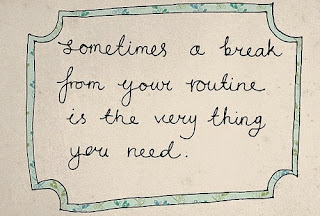 sometimes a break
from your routine
is the very thing
you need.